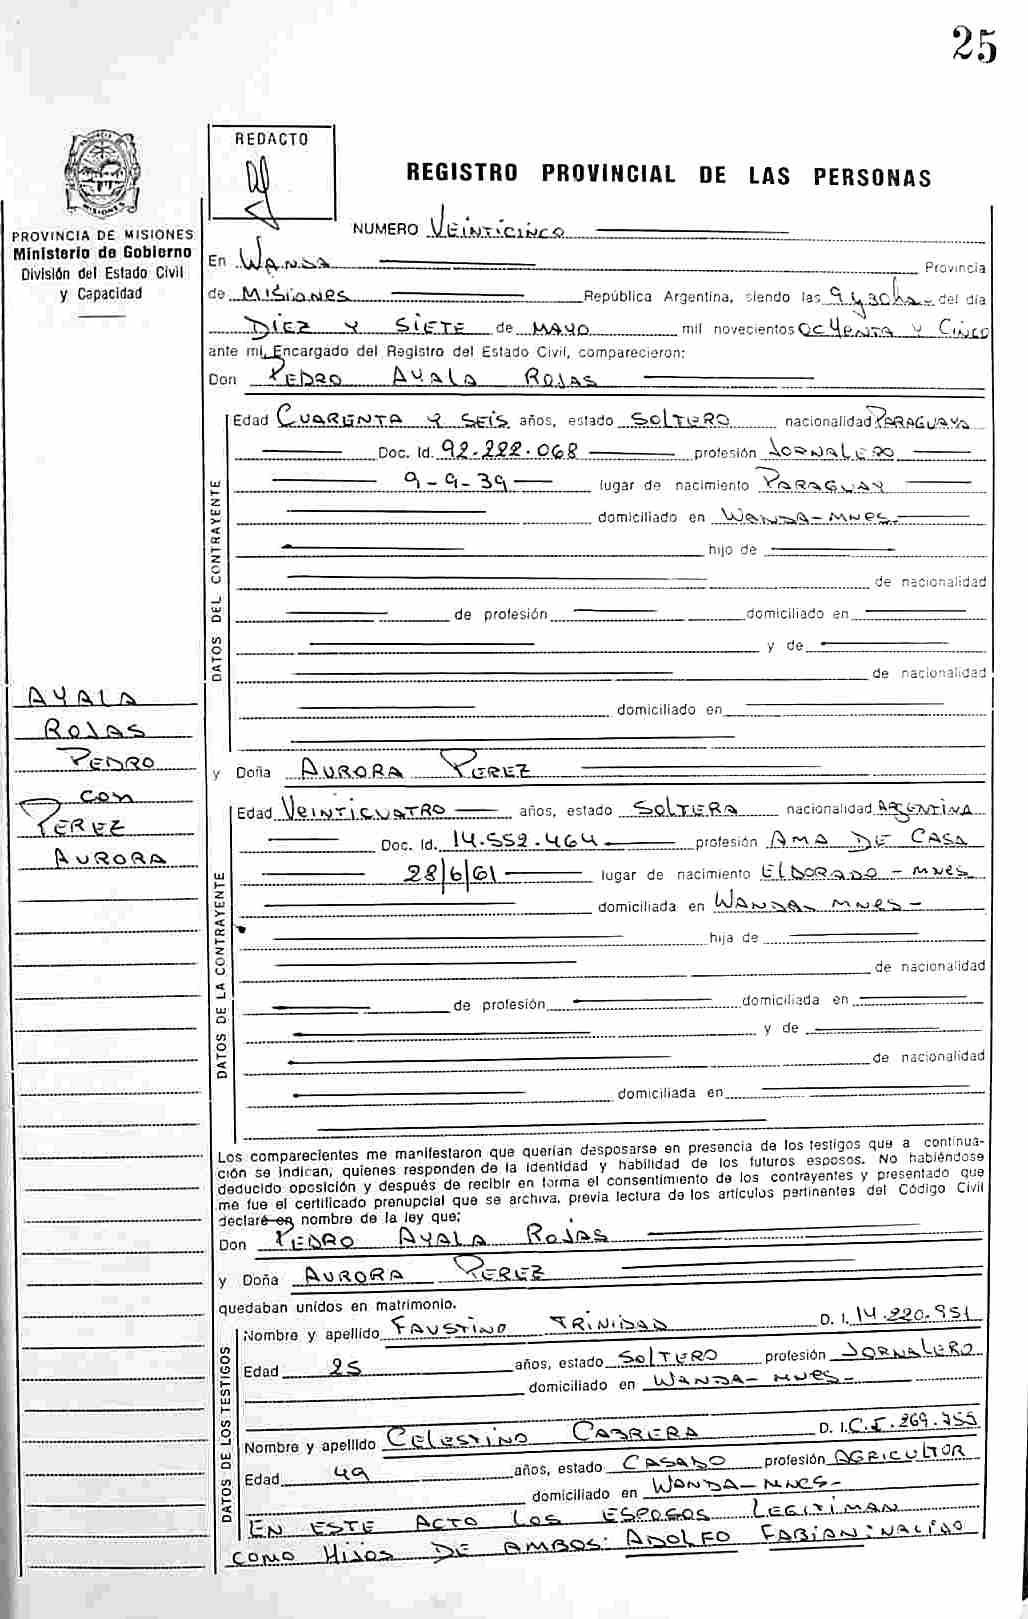 25
REDACTO
REGISTRO PROVINCIAL DE LAS PERSONAS
MISIONES
PROVINCIA DE MISIONES
Ministerio de Gobierno
División del Estado Civil
y Capacidad
NUMERO VEINTICINCO
En WANDA Provincia
de MISIONES República Argentina, siendo las 9 y 30 hs - del día
DIEZ Y SIETE de MAYO mil novecientos OCHENTA Y CINCO
ante mí, Encargado del Registro del Estado Civil, comparecieron:
Don PEDRO AYALA ROJAS
DATOS DEL CONTRAYENTE
Edad CUARENTA Y SEIS años, estado SOLTERO nacionalidad PARAGUAYA
Doc. Id. 92.222.068 profesión JORNALERO
9-9-39 lugar de nacimiento PARAGUAY
domiciliado en WANDA-MNES.
hijo de
de nacionalidad
de profesión domiciliado en
y de
de nacionalidad
domiciliado en
AYALA
ROJAS
PEDRO
con
PEREZ
AURORA
y Doña AURORA PEREZ
DATOS DE LA CONTRAYENTE
Edad VEINTICUATRO años, estado SOLTERA nacionalidad ARGENTINA
Doc. Id. 14.552.464 profesión AMA DE CASA
28/6/61 lugar de nacimiento ELDORADO - MNES
domiciliada en WANDA MNES-
hija de
de nacionalidad
de profesión domiciliada en
y de
de nacionalidad
domiciliada en
Los comparecientes me manifestaron que querían desposarse en presencia de los testigos que a continua-
ción se indican, quienes responden de la identidad y habilidad de los futuros esposos. No habiéndose
deducido oposición y después de recibir en forma el consentimiento de los contrayentes y presentado que
me fue el certificado prenupcial que se archiva, previa lectura de los artículos pertinentes del Código Civil
declaré en nombre de la ley que:
Don PEDRO AYALA ROJAS
y Doña AURORA PEREZ
quedaban unidos en matrimonio.
DATOS DE LOS TESTIGOS
Nombre y apellido FAUSTINO TRINIDAD D. I. 14.220.951
Edad 25 años, estado SOLTERO profesión JORNALERO
domiciliado en WANDA- MNES-
Nombre y apellido CELESTINO CABRERA D. I. C.I. 269.755
Edad 49 años, estado CASADO profesión AGRICULTOR
domiciliado en WANDA-MNES-
EN ESTE ACTO LOS ESPOSOS LEGITIMAN
COMO HIJOS DE AMBOS: ADOLFO FABIAN: NACIDO